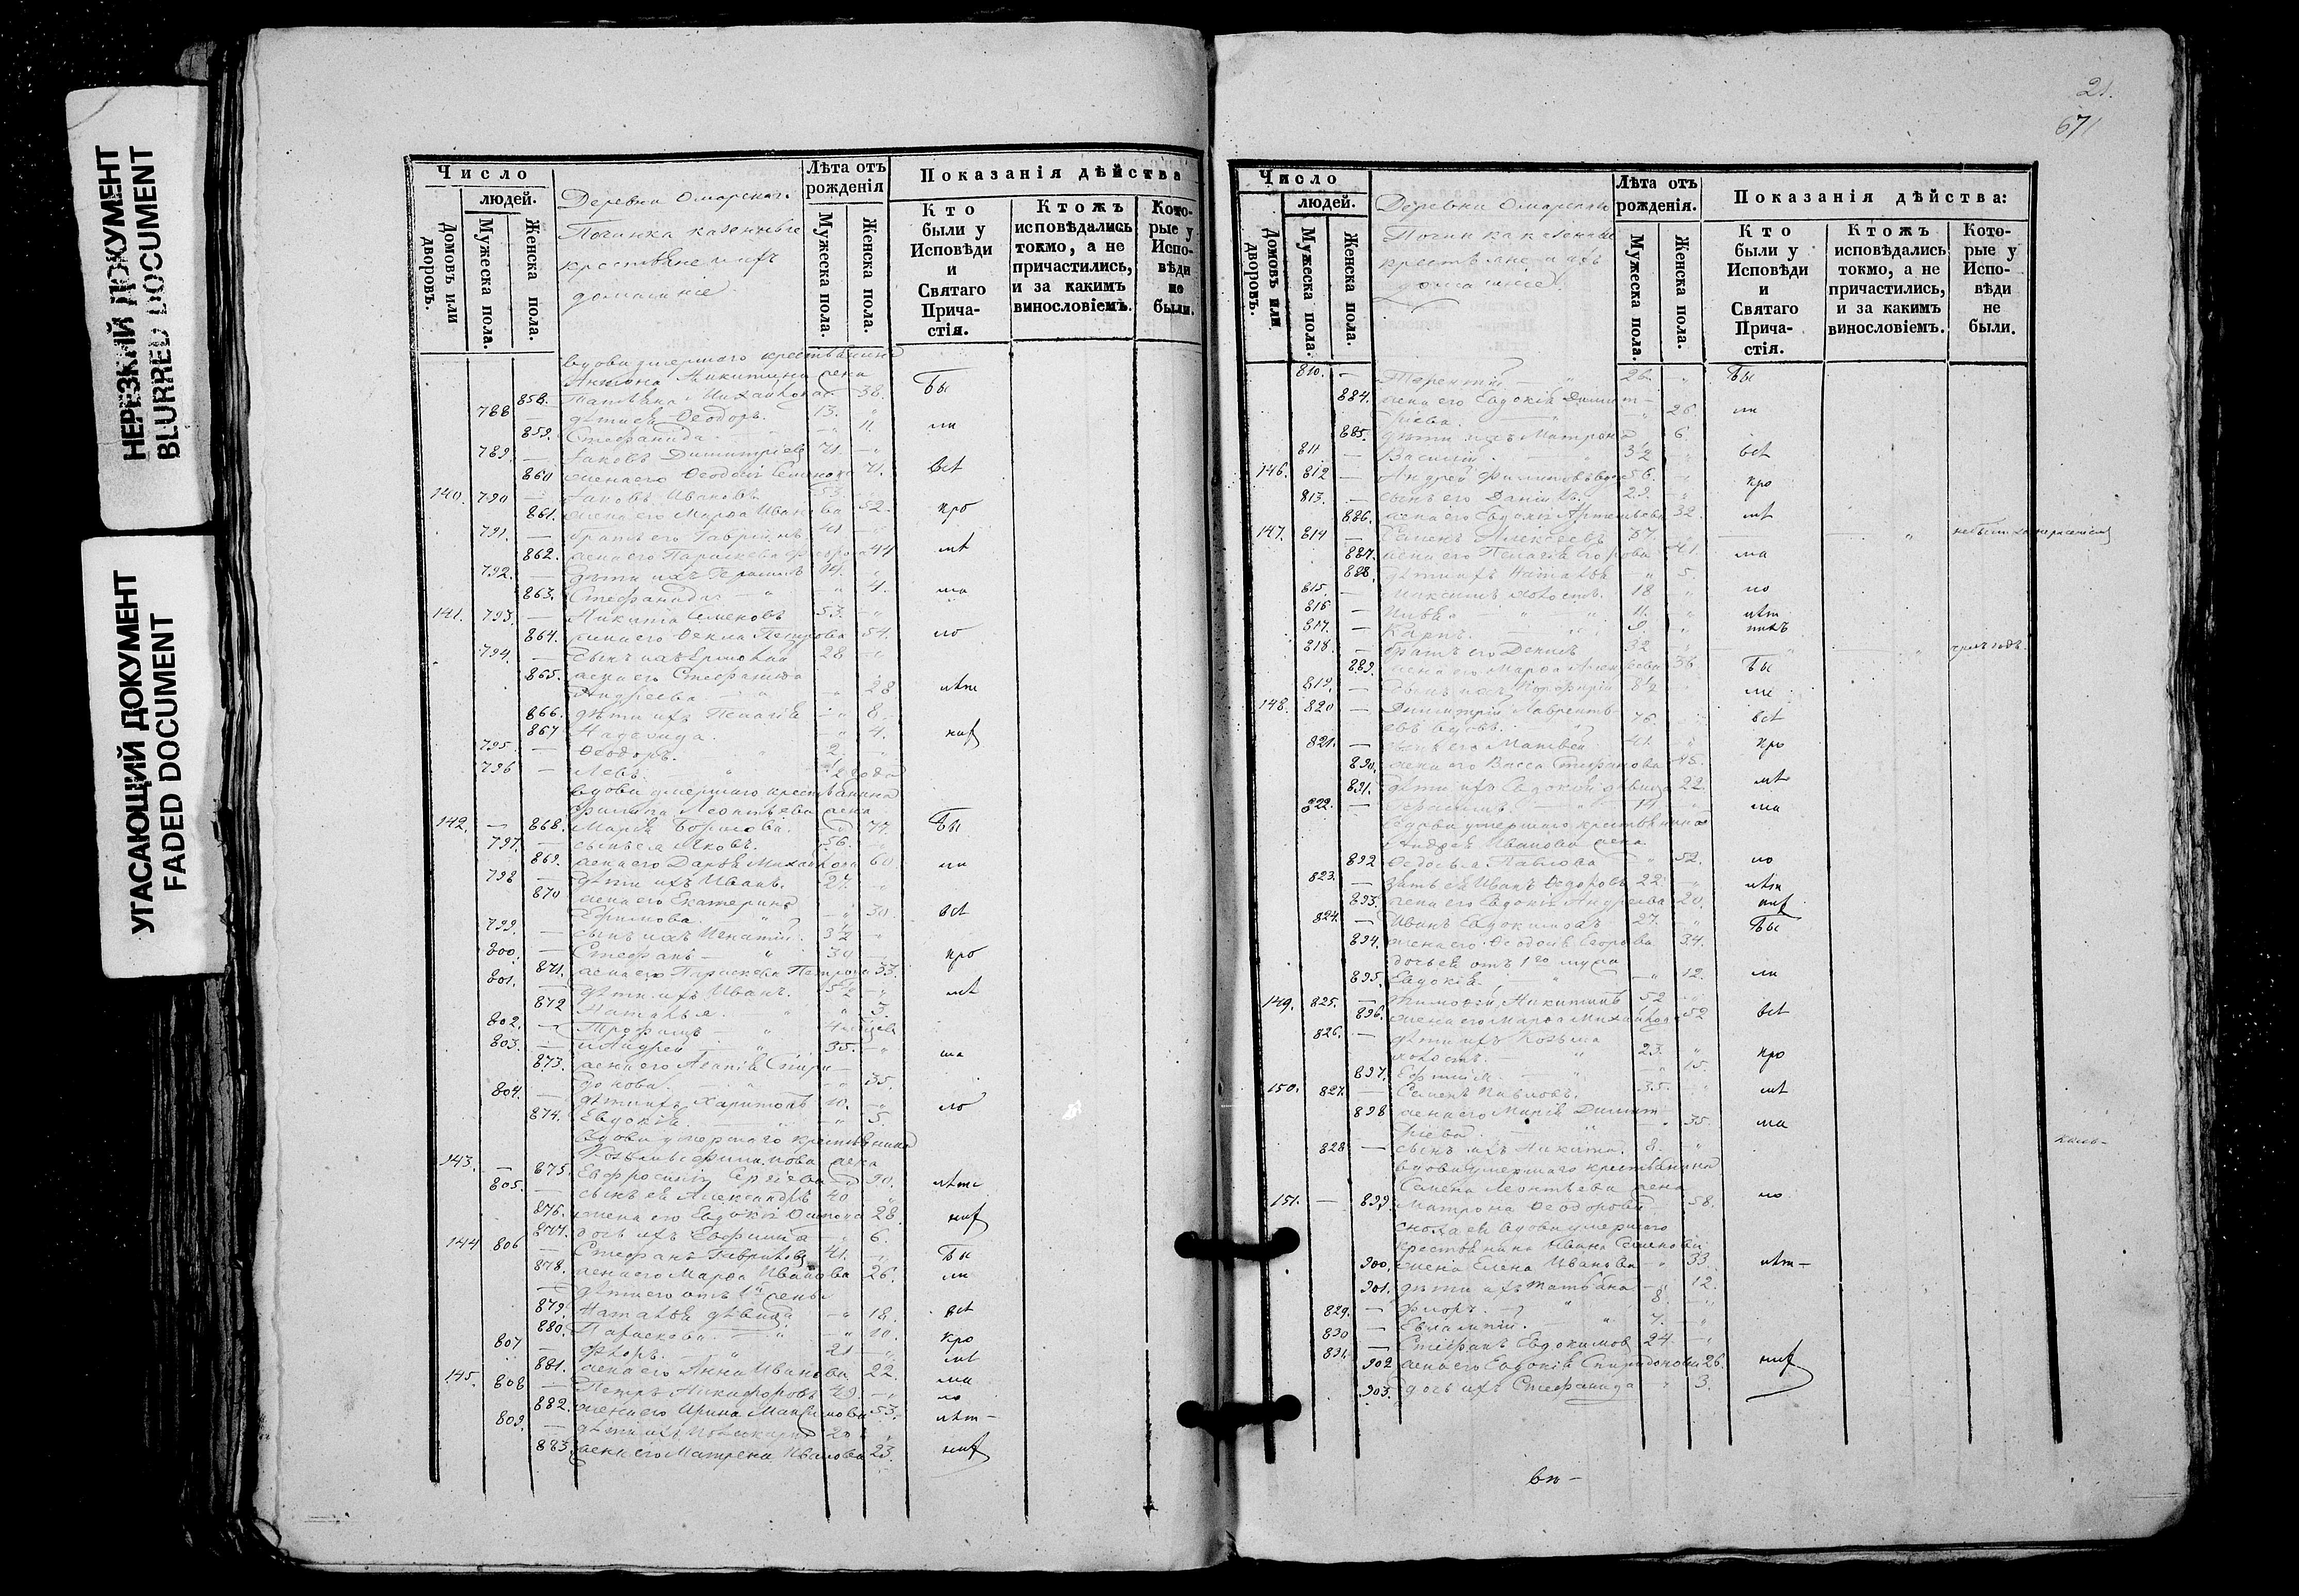 НЕРЕЗКИЙ ДОКУМЕНТ
BLURRED DOCUMENT
УГАСАЮЩИЙ ДОКУМЕНТ
FADED DOCUMENT
Число
людей.
Домовъ или дворовъ.
Мужеска пола.
Женска пола.
Деревни Омарскаго
Починка казенные
крестьяне и ихъ
домашніе
Лѣта отъ рожденія
Мужеска пола.
Женска пола.
Показанія дѣйства
Кто были у Исповѣди и Святаго Прича-стія.
Ктожъ исповѣдались токмо, а не причастились, и за какимъ винословіемъ.
Кото-рые у Испо-вѣди не были.
вдова умершаго крестьянина
Антона Никитина жена
858. Татьяна Михайлова 38. Бы
788 дѣти ея Ѳеодоръ. 13.
859. Стефанида 11. ли
789. Іаковъ Димитріевъ 71.
860 жена его Ѳеодосія Семенова 71. всѣ
140. 790 Іаковъ Ивановъ 53.
861. жена его Марѳа Иванова 52. кро
791. братъ его Гавріилъ 41
862. жена его Параскева 44 мѣ
792. дѣти ихъ Герасимъ 14.
863. Стефанида 4. ма
141. 793. Никита Семеновъ 53.
864. жена его Ѳекла Петрова 54. ло
794. сынъ ихъ 28
865. жена его Стефанида
Андреева 28 лѣт
866. дѣти ихъ Пелагія 8.
867 4. ниχъ
795. Ѳеодоръ. 2.
796 Левъ. 1/2 года
вдова умершаго крестьянина
Филипа Леонтьева жена
142. 868. Марія Борисова. 77. Бы
797. сынъ ея Яковъ. 56.
869. жена его Дарья Михайлова 60 ли
798 дѣти ихъ Иванъ. 27.
870 жена его Екатерина
Ефимова. 30. всѣ
799. сынъ ихъ Игнатій. 3 1/2
800. Стефанъ 30 кро
871. жена его Параскева Петрова 33.
801. дѣти ихъ Иванъ. 5 1/2 мѣ
872 Наталья 3.
802. Трофимъ 4
803. Андрей 35. ма
873. жена его Агапія Спири-
донова. 35.
804. дѣти ихъ Харитонъ 10. ло
874. Евдокія. 5.
Вдова умершаго крестьянина
Филимонова жена
143. 875. Евфросинія Сергіева 90. лѣт
805. сынъ ея Александръ 40
876. жена его Евдокія 28 ниχъ
877. дочь ихъ Евфимія 6.
144 806 Стефанъ Гавриловъ 41. Бы
878. жена его Марѳа Иванова 26. ли
дѣти его отъ 1й жены
879. Наталья дѣвица 18. всѣ
880. Параскева. 10. кро
807 Флоръ. 21 мѣ
881. жена его Анна Иванова 22. ма
145. 808 Петръ Никифоровъ 49. ло
882. жена его Ирина Максимова 53. лѣт-
809. дѣти ихъ 20
883. жена его Матрена Иванова 23. ниχъ
21.
671
Число
людей.
Домовъ или дворовъ.
Мужеска пола.
Женска пола.
Деревни Омарскаго
Починка казенные
крестьяне и ихъ
домашніе
Лѣта отъ рожденія.
Мужеска пола.
Женска пола.
Показанія дѣйства:
Кто были у Исповѣди и Святаго Прича-стія.
Ктожъ исповѣдались токмо, а не причастились, и за какимъ винословіемъ.
Кото-рые у Испо-вѣди не были.
810. Терентій 26. Бы
884. жена его Евдокія Димит-
ріева. 26 ли
885. дѣти ихъ Матрона 6.
811 Василій. 3 1/2 всѣ
146. 812 Андрей Филиповъ 56. кро
813. сынъ его Даніилъ. 29.
886. жена его Евдокія Артемьева 32. мѣ
147. 814 Семенъ Алексеевъ 57.
887. жена его Пелагія Егорова 41. ма
888. дѣти ихъ Наталья 5.
815. Максимъ холостъ. 18 ло
816 Илья. 11. лѣт
817. Карпъ. 9. нихъ
818. братъ его Денисъ 32
889. жена его Марѳа Алексеева 36 Бы
819. сынъ ихъ Порфирій 8 1/2 ли
148. 820 Димитрій Лавренть-
евъ вдовъ. 76. всѣ
821. сынъ его Матвей 41. кро
890. жена его Васса Стефанова 45.
891. дѣти ихъ Евдокія дѣвица 22. мѣ
822. Герасимъ. 14 ма
Вдова умершаго крестьянина
Андрея Иванова жена
892 Ѳедосья Павлова 52. ло
823. зять ея Иванъ Ѳедоровъ 22. лѣт
893. жена его Евдокія Андреева 20. ниχъ
824. Иванъ Евдокимовъ 27. Бы
894. жена его Ѳеодосія Егорова 34.
дочь ея отъ 1го мужа
895. Евдокія. 12. ли
149. 825. Тимофей Никитинъ 52
896. жена его Марѳа Михайлова 52 всѣ
826. дѣти ихъ Козьма
холостъ. 23. кро
897. 15.
150. 827. Семенъ Павловъ. 35. мѣ
898 жена его Марія Димит-
ріева. 35. ма
828. сынъ ихъ Никита. 8.
вдова умершаго крестьянина
Семена Леонтьева жена
151. 899. Матрона Ѳеодорова 58. ло
сноха ея вдова умершаго
крестьянина Ивана Семенова
900. жена Елена Иванова 33. лѣт-
901. дѣти ихъ Татьяна 12.
829. Флоръ. 8.
830 Евлампій. 7.
831. Стефанъ Евдокимов 24.
902 жена его Евдокія Спиридонова 26. ниχъ
903. дочь ихъ Стефанида 3.